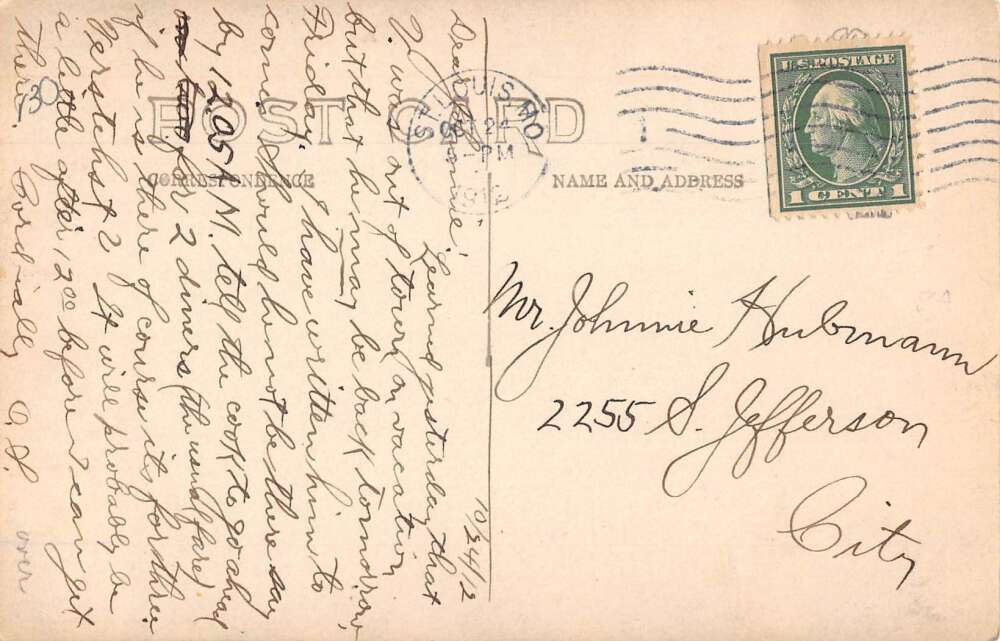 POST CARD
CORRESPONDENCE
NAME AND ADDRESS
U.S. POSTAGE
1 CENT 1
ST. LOUIS, MO.
24
PM
10/24/12
Dear Johnnie,
Learned yesterday that
J. was out of town on vacation,
but that he may be back tomorrow,
Friday. I have written him to
come. Should he not be there say
by 12.05 P.M. tell the cook to go ahead
for 2 diners (the usual fare)
if he is there of course its for three.
Versteht? It will probably be
a little after 12 00 before I can get
there. Cordially
O. S.
over
30
Mr. Johnnie Hubmann
2255 S. Jefferson
City